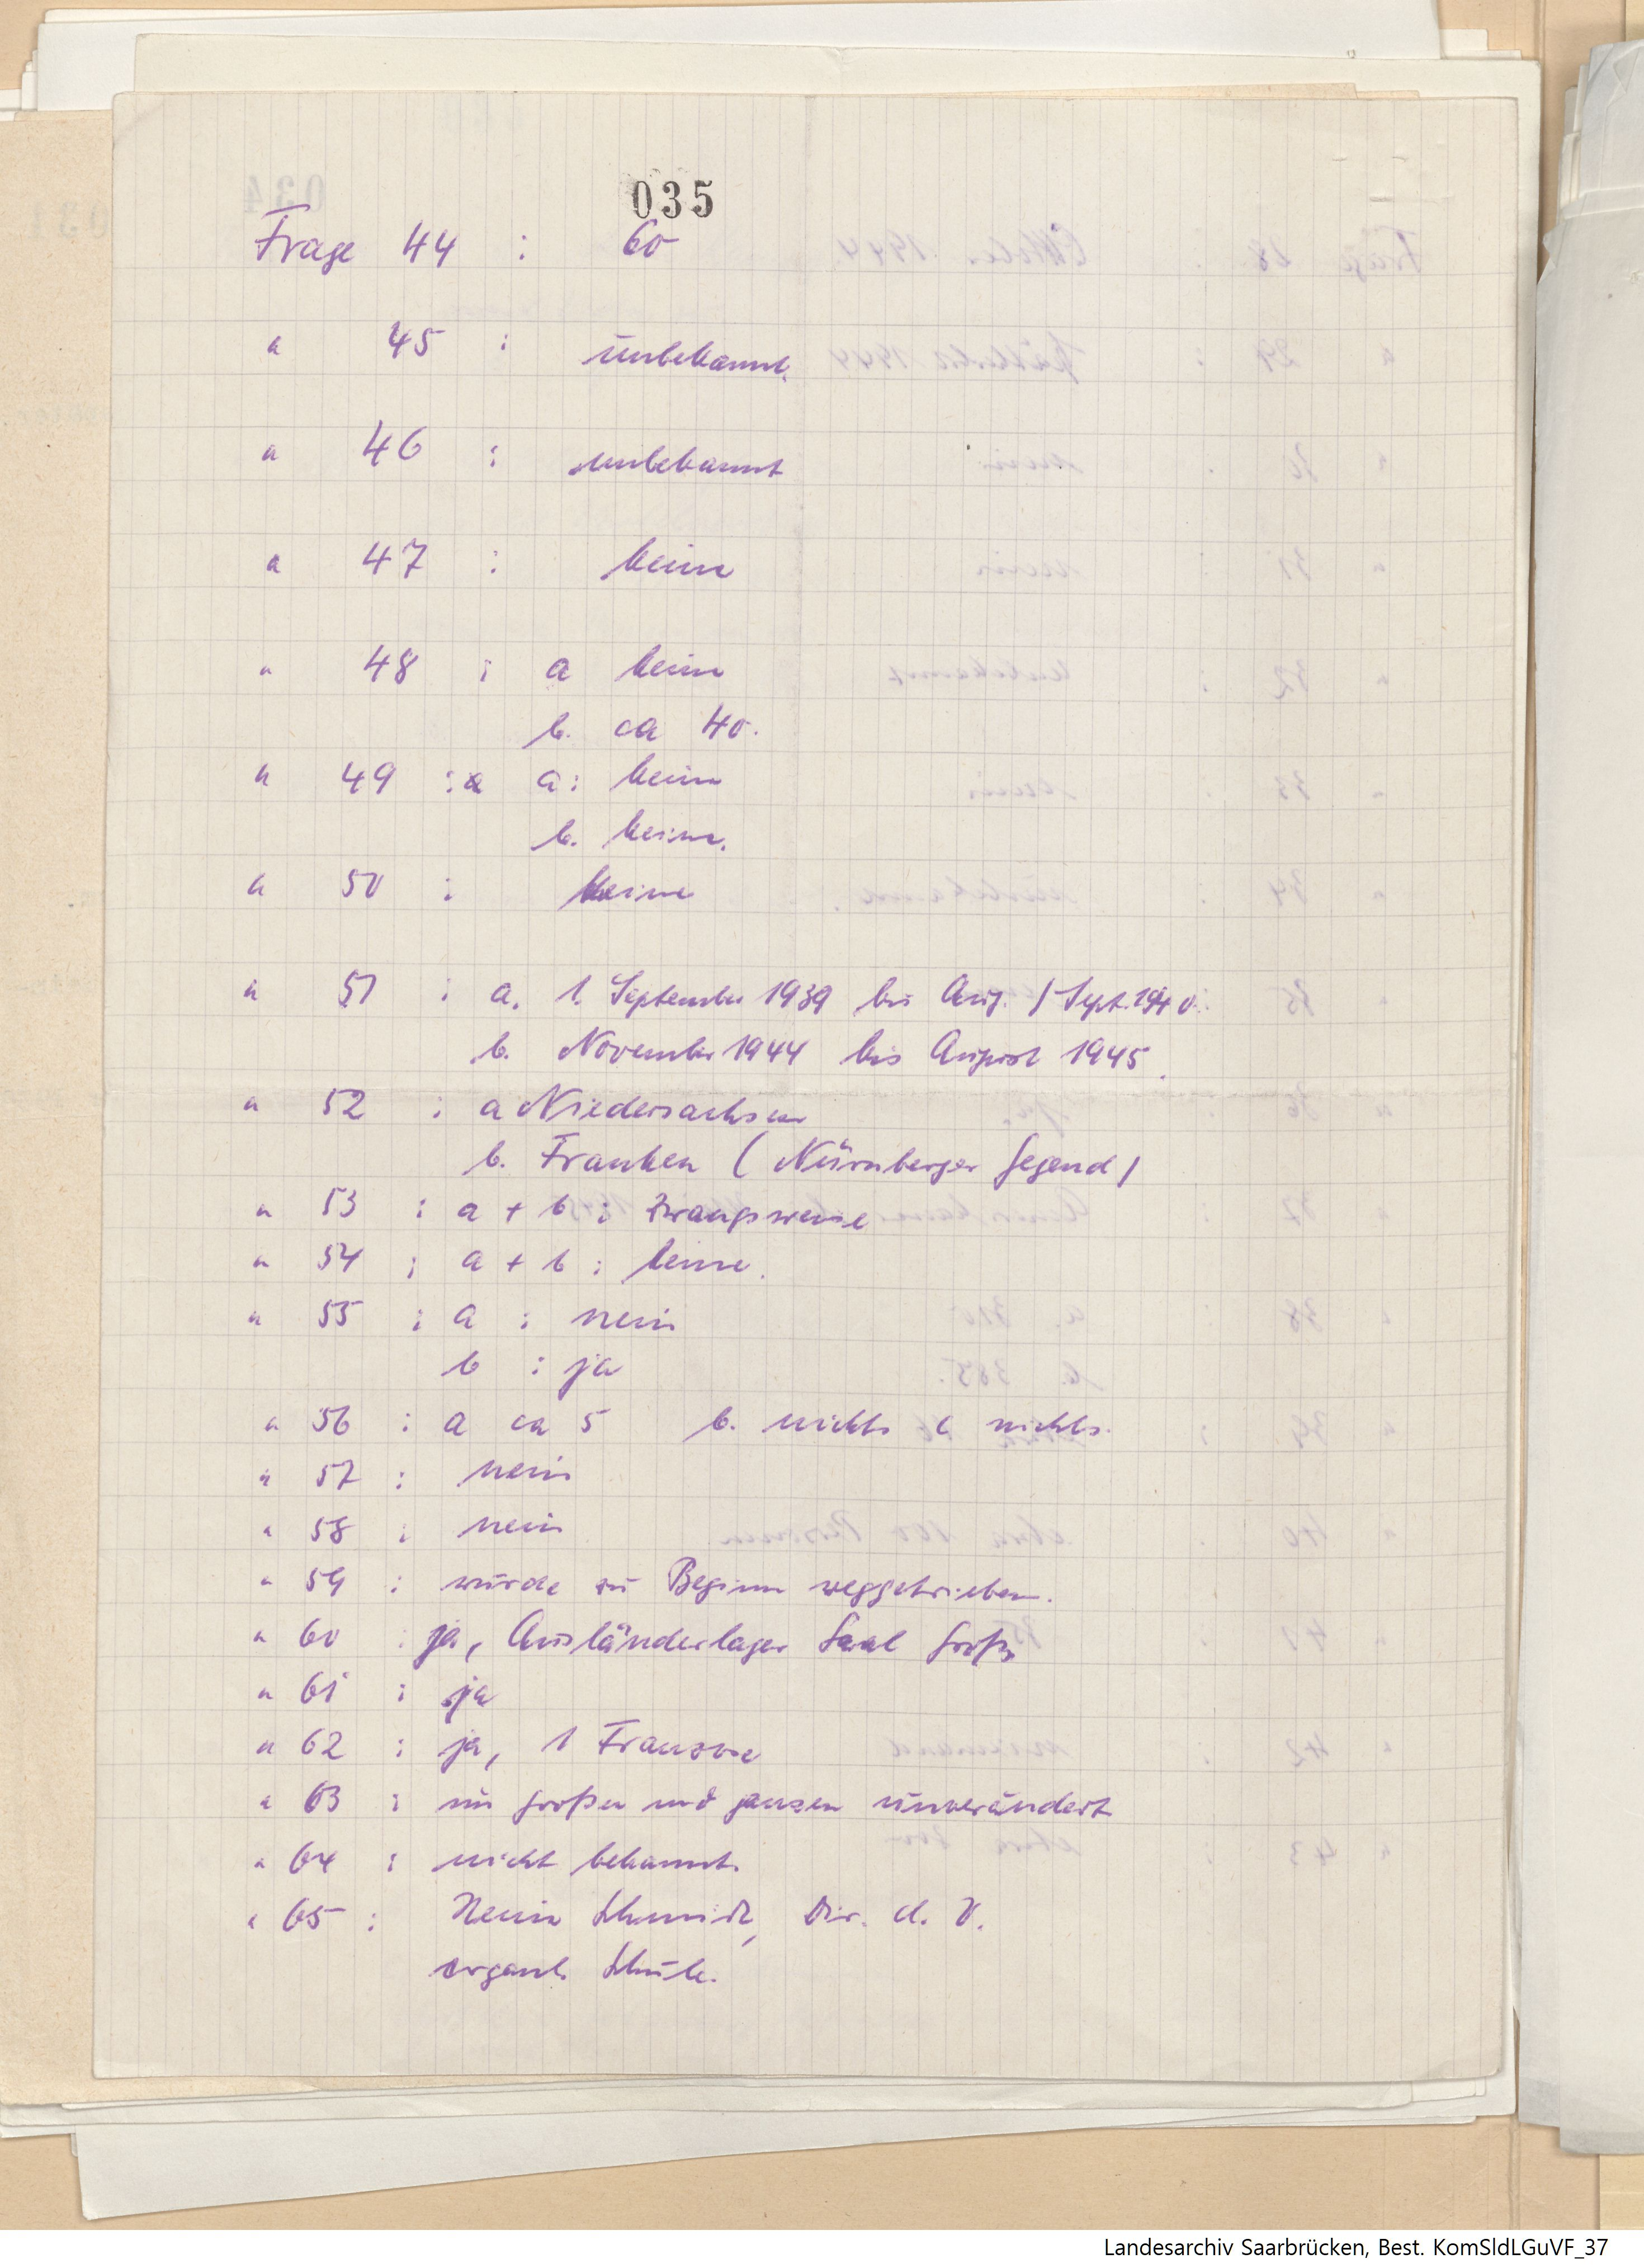 035
Frage 44 : 60
" 45 : unbekannt.
" 46 : unbekannt
" 47 : keine
" 48 : a keine
b. ca 40.
" 49 : a: keine
b. keine.
" 50 : keine
" 51 : a. 1. September 1939 bis Aug. / Sept. 1940.
b. November 1944 bis August 1945.
" 52 : a Niedersachsen
b. Franken (Nürnberger Gegend)
" 53 : a + b : zwangsweise
" 54 : a + b : keine.
" 55 : a : nein
b : ja
" 56 : a ca 5 b. nichts c nichts.
" 57 : nein
" 58 : nein
" 59 : wurde zu Beginn weggetrieben.
" 60 : ja, Ausländerlager Saal
" 61 : ja
" 62 : ja, 1 Franzose
" 63 : im großen und ganzen unverändert
" 64 : nicht bekannt.
" 65 : Schmidt, Dir. d. V.
Schule.
Landesarchiv Saarbrücken, Best. KomSldLGuVF_37